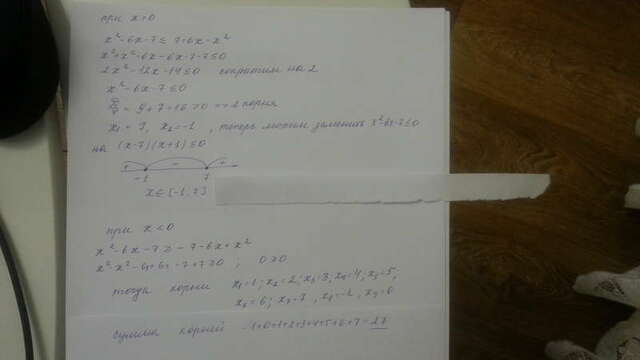 при x>0
x²-6x-7≤ 7+6x-x²
x²+x²-6x-6x-7-7≤0
2x²-12x-14≤0 сократим на 2
x²-6x-7≤0
= 9+7=16>0 => 2 корня
x₁ = 7, x₂=-1 , теперь можем заменить x²-6x-7≤0
на (x-7)(x+1)≤0
+ - +
-1 7
x∈[-1,7]
при x<0
x²-6x-7≥-7-6x+x²
x²-x²-6x+6x-7+7≥0 ; 0≥0
тогда корни x₁=1; x₂=2; x₃=3; x₄=4; x₅=5,
x₆=6; x₇=7, x₈=-1, x₉=0
сумма корней -1+0+1+2+3+4+5+6+7=27